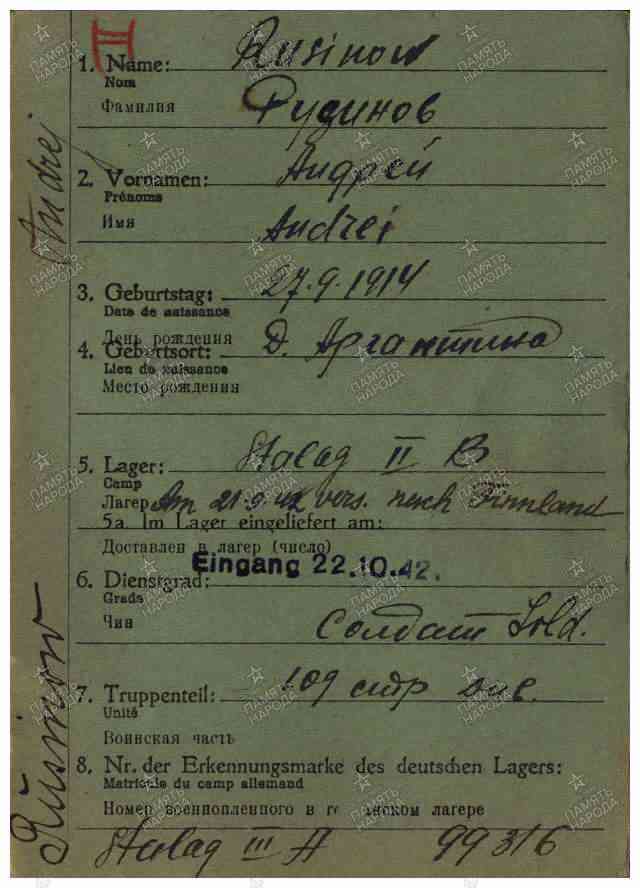 II
1. Name: Rusinow
Nom
Фамилия Русинов
2. Vornamen: Андрей
Prénoms
Имя Andrei
3. Geburtstag: 27.9.1914
Date de naissance
День рождения
4. Geburtsort: Д.
Lieu de naissance
Место рождения
5. Lager: Stalag II B
Camp
Лагерь Am 21.9.42 vers. nach Finnland
5a. Im Lager eingeliefert am:
Доставлен в лагерь (число)
Eingang 22.10.42.
6. Dienstgrad:
Grade
Чин Солдат Sold.
7. Truppenteil: 109 стр див.
Unité
Воинская часть
8. Nr. der Erkennungsmarke des deutschen Lagers:
Matricule du camp allemand
Номер военнопленного в лагере
Stalag III A 99316
Andrei
Rusinow
ПАМЯТЬ НАРОДА